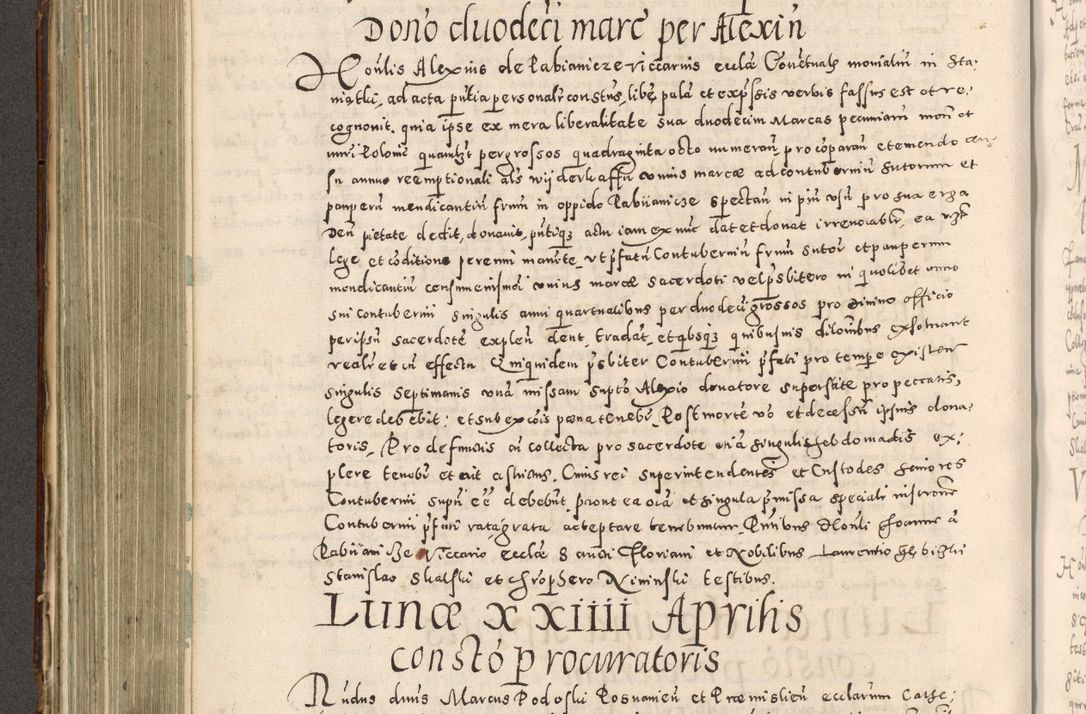 Donõ duodeci marc̃ per Alexiũ
Honlis Alexius de Pabianicze viccarius eccläe Conẽtualis monialiũ in Sta-
niątki, ad acta p̃ntia personalr̃ constũs, libẽ palã et exp̃ssis verbis fassus est et re-
cognouit, quia ipse ex mera liberalitate sua duodecim Marcas pecuniarũ mon̄ et
nuri Poloniẽ quamlib̃t per grossos quadraginta octo numeran̄, pro cõparan̄ et emendo cen-
su annuo reemptionali als wijderkaffu vnius marcæ ad contuberniũ Sutorum et
pauperũ mendicantiũ frum̄ in oppido Pabiianicze spectan̄ in piũ vsũ pro sua erga
Deũ pietate dedit, donauit, p̃ntiqz actu iam ex nũc dat et donat irreuocabilr̃, ea
lege et cõditione perenni manẽte, vt p̃fatũ Contuberniũ frum̄ Sutor̃ et pauperum
mendicantiũ censum eiusmõi vnius marcæ sacerdoti vel p̃sbitero in quolibet anno
sui contubernii singulis anni quartualibus per duodeci grossos pro diuino officio
per ipsũ sacerdotẽ explen̄ dent, tradãt, et absqz quibusuis dilonibus exsoluant
realr̃ et cũ effectu. Qui quidem p̃sbiter Contubernii p̃fati pro tempore existen̄
singulis septimanis vnã missam supto Alexio donatore superstite pro peccatis,
legere debebit: et sub excõis pæna tenebr̃. Post mortẽ vo et decessũ ipsius dona-
toris, Pro defunctis cũ collecta pro sacerdote etiã singulis hebdomadis ex-
plere tenebr̃ et erit astrictus. Cuius rei superintendentes et Custodes seniores
Contubernii supti eẽ debebũt, prout ea oĩa et singula p̃missa speciali inscr̃one
Contubernii p̃fati rata grata acceptare tenebuntur. Pñtibus Honli Joanne à
Pabiianicze Viccario eccläe S ancti Floriani et Nobilibus Laurentio
Stanislao Skalski et Christophero Nininski testibus.
Lunæ xxiiii Aprilis
constõ procuratoris
Nudus dnus Marcus Podoski Posnanieñ et Præmislieñ ecclarum Cathe-